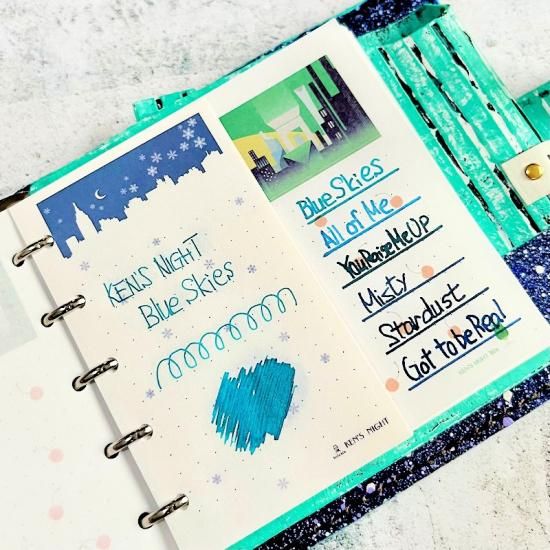 KEN'S NIGHT
Blue Skies
KEN'S NIGHT
Blue Skies
All of Me
You Raise Me Up
Misty
Stardust
Got to be Real